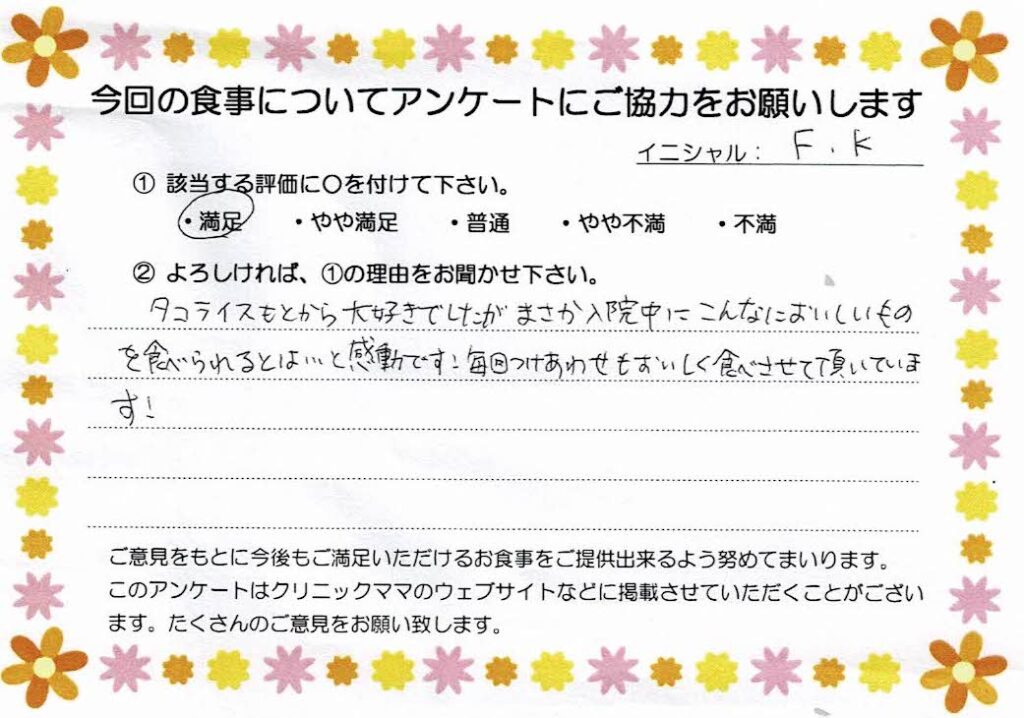 今回の食事についてアンケートにご協力をお願いします
イニシャル： F.K
① 該当する評価に〇を付けて下さい。
・満足 ・やや満足 ・普通 ・やや不満 ・不満
② よろしければ、①の理由をお聞かせ下さい。
タコライスもとから大好きでしたが まさか入院中に こんなにおいしいもの
を食べられるとは…と感動です！毎回つけあわせもおいしく食べさせて頂いていま
す！
ご意見をもとに今後もご満足いただけるお食事をご提供出来るよう努めてまいります。
このアンケートはクリニックママのウェブサイトなどに掲載させていただくことがござい
ます。たくさんのご意見をお願い致します。